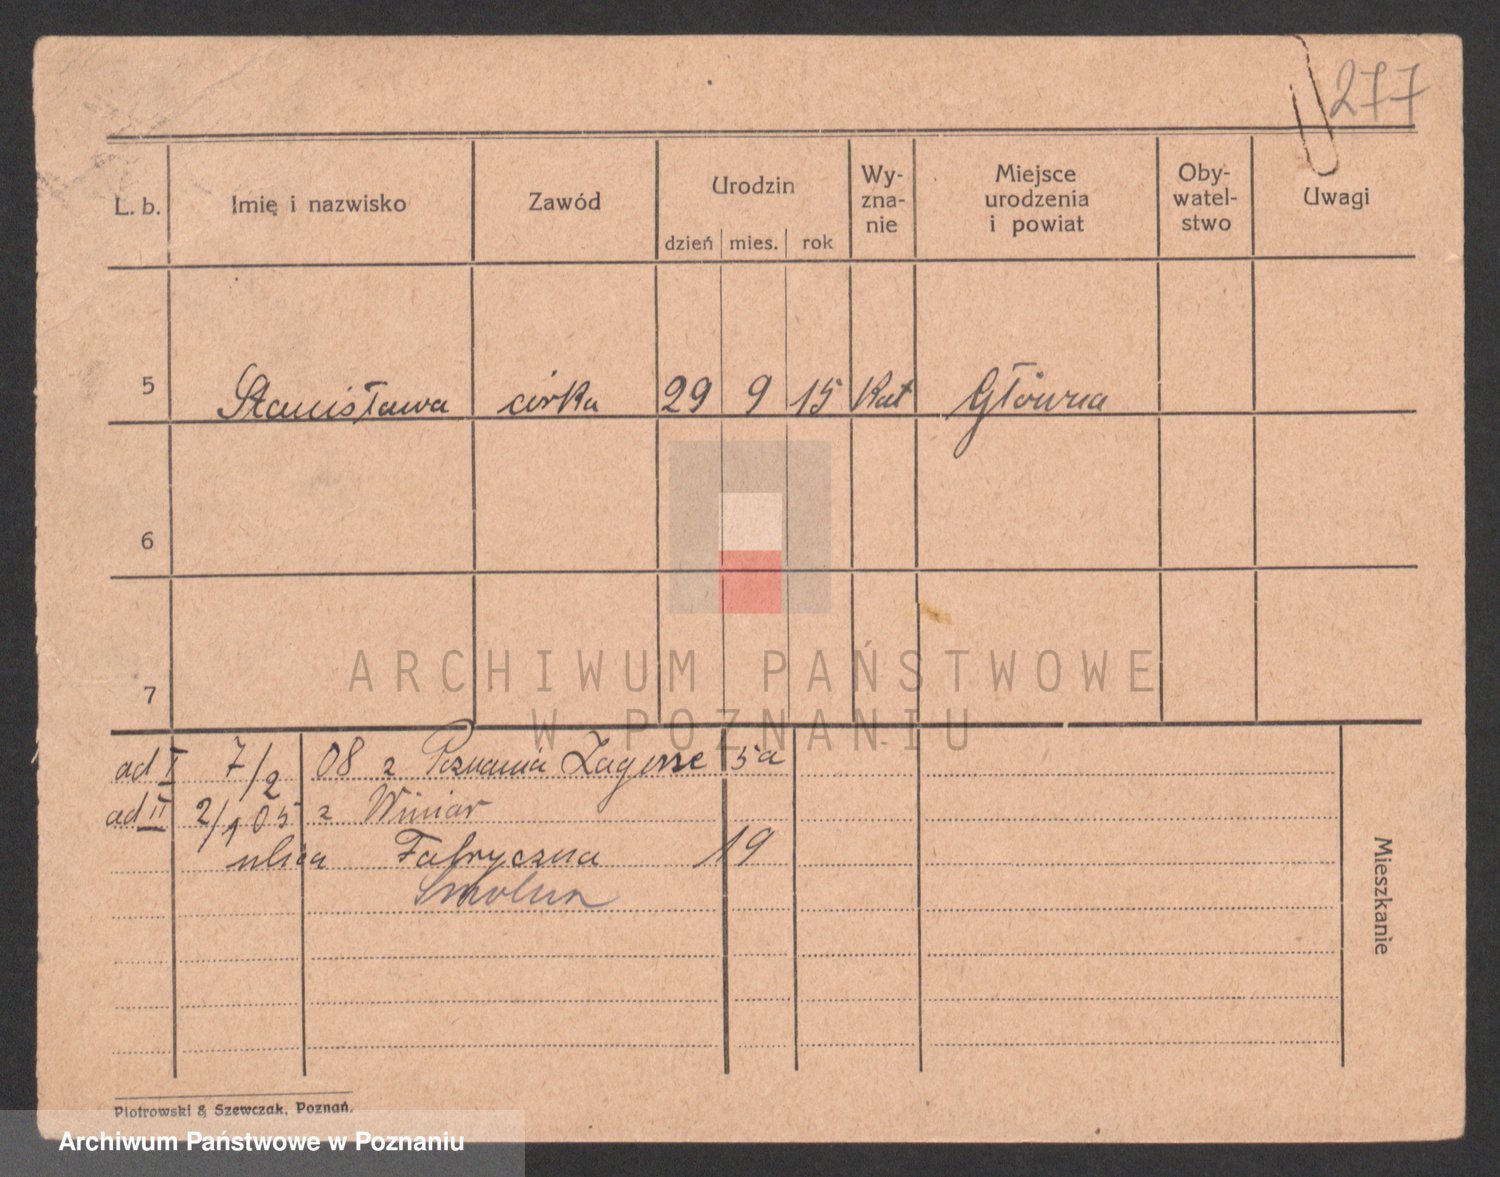 277
L. b. Imię i nazwisko Zawód Urodzin Wy- Miejsce Oby- Uwagi
zna- urodzenia watel-
nie i powiat stwo
dzień mies. rok
5 Stanisława córka 29 9 15 Kat Główna
6
7
ARCHIWUM PAŃSTWOWE
W POZNANIU
ad I 7/2 08 z Poznania Zagorze 5a
ad II 2/1 05 z Winiar
ulica Fabryczna 19
Mieszkanie
Piotrowski & Szewczak, Poznań.
Archiwum Państwowe w Poznaniu